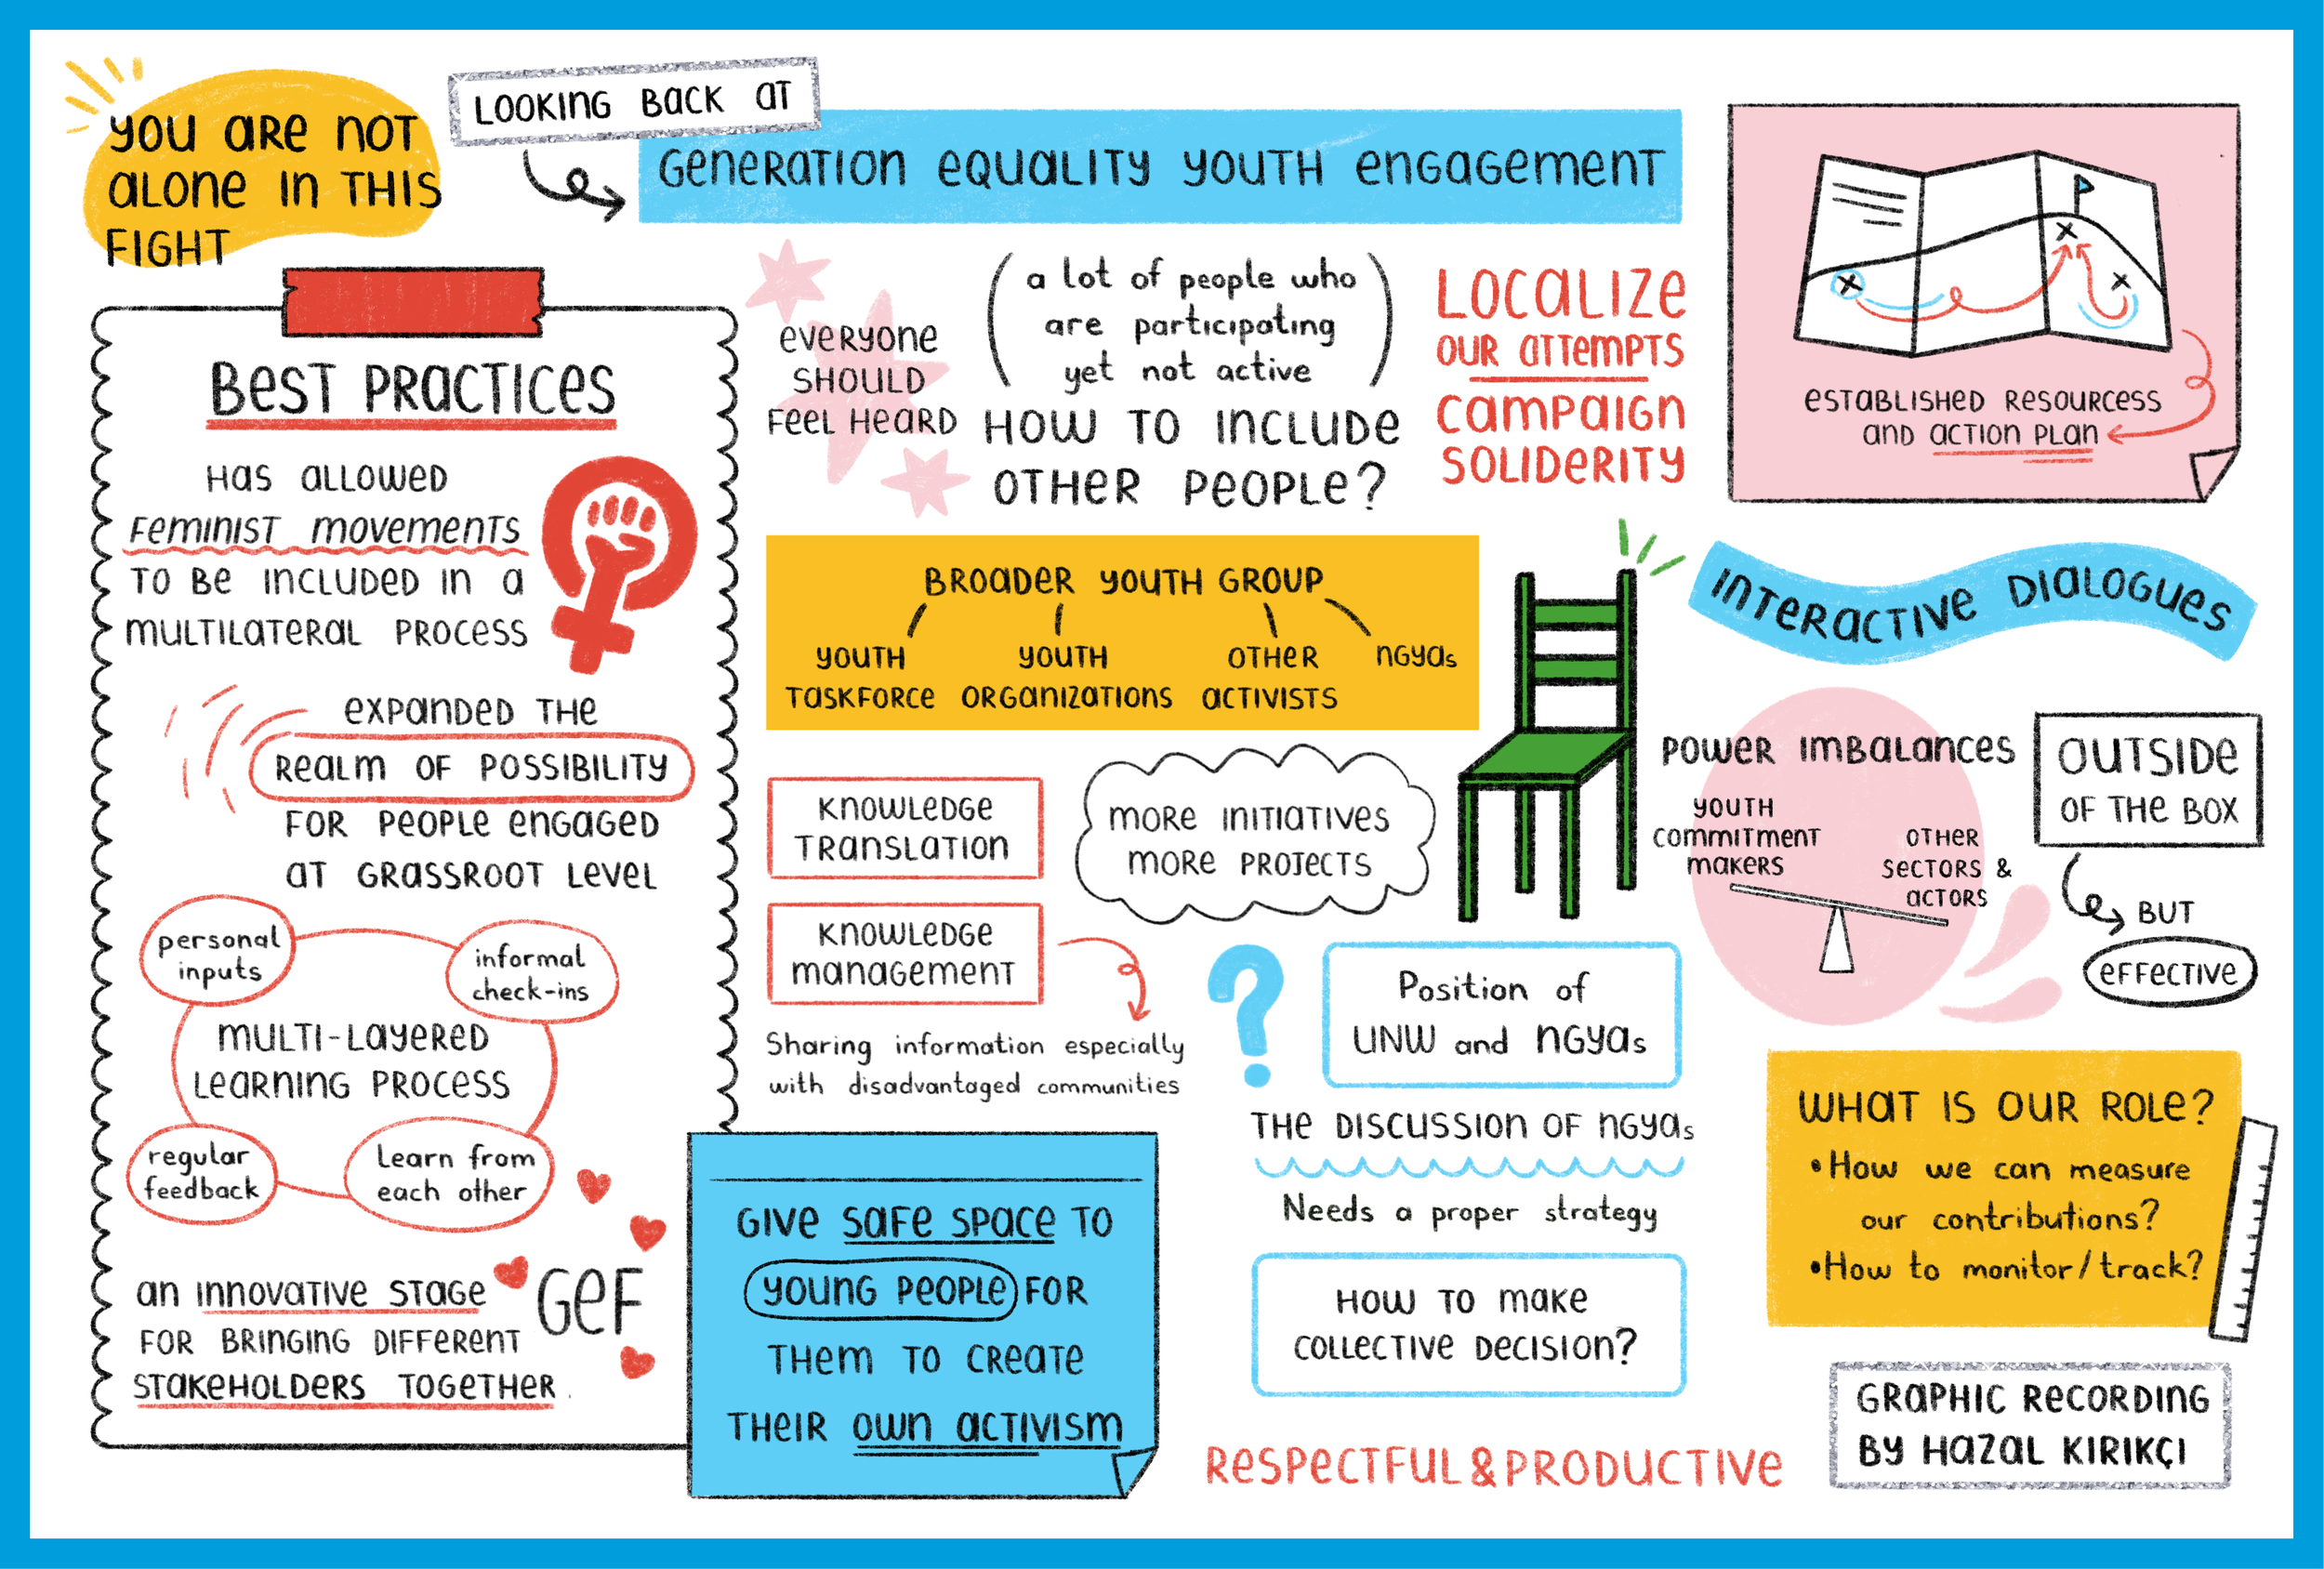 YOU ARE NOT
ALONE IN THIS
FIGHT
LOOKING BACK AT
GENERATION EQUALITY YOUTH ENGAGEMENT
BEST PRACTICES
HAS ALLOWED
FEMINIST MOVEMENTS
TO BE INCLUDED IN A
MULTILATERAL PROCESS
EXPANDED THE
REALM OF POSSIBILITY
FOR PEOPLE ENGAGED
AT GRASSROOT LEVEL
personal
inputs
informal
check-ins
MULTI-LAYERED
LEARNING PROCESS
regular
feedback
Learn from
each other
AN INNOVATIVE STAGE
FOR BRINGING DIFFERENT
STAKEHOLDERS TOGETHER.
GEF
EVERYONE
SHOULD
FEEL HEARD
(a lot of people who
are participating
yet not active)
HOW TO INCLUDE
OTHER PEOPLE?
LOCALIZE
OUR ATTEMPTS
CAMPAIGN
SOLIDERITY
ESTABLISHED RESOURCESS
AND ACTION PLAN
BROADER YOUTH GROUP
YOUTH
TASKFORCE
YOUTH
ORGANIZATIONS
OTHER
ACTIVISTS
NGYAs
KNOWLEDGE
TRANSLATION
MORE INITIATIVES
MORE PROJECTS
KNOWLEDGE
MANAGEMENT
Sharing information especially
with disadvantaged communities
GIVE SAFE SPACE TO
YOUNG PEOPLE FOR
THEM TO CREATE
THEIR OWN ACTIVISM
INTERACTIVE DIALOGUES
POWER IMBALANCES
YOUTH
COMMITMENT
MAKERS
OTHER
SECTORS &
ACTORS
OUTSIDE
OF THE BOX
BUT
EFFECTIVE
?
Position of
UNW and NGYAs
THE DISCUSSION OF NGYAs
Needs a proper strategy
HOW TO MAKE
COLLECTIVE DECISION?
RESPECTFUL & PRODUCTIVE
WHAT IS OUR ROLE?
•How we can measure
our contributions?
•How to monitor/track?
GRAPHIC RECORDING
BY HAZAL KIRIKÇI